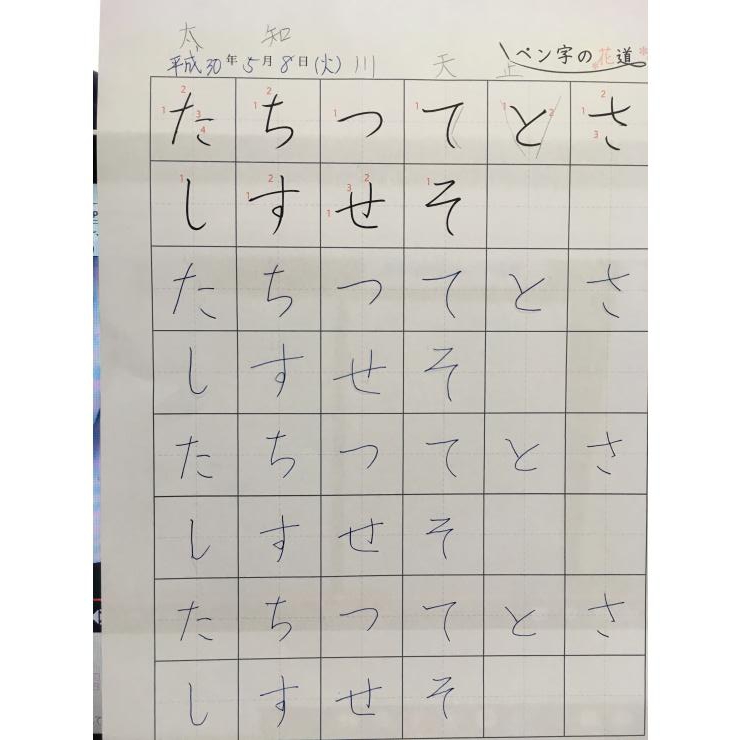 太 知
平成30年5月8日(火) 川 天 止 ペン字の花道
た ち つ て と さ
し す せ そ
た ち つ て と さ
し す せ そ
た ち つ て と さ
し す せ そ
た ち つ て と さ
し す せ そ